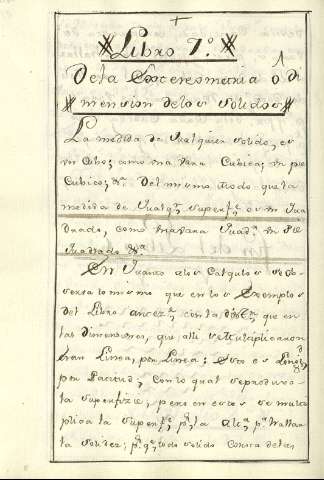 Libro 7.º
De la Estereometria ó di
mension de los solidos
La medida de qualquier solido, es
un Cubo; como una Vara Cubica, un pie
Cubico, &ª. Del mismo modo que la
medida de qualqª. superfª. es un qua
drado, como una vara quadª. un pie
quadrado &ª.
En quanto a los Calculos se ob
serva lo mismo que en los Exemplos
del Libro antezª. con la difª. que en
las dimensiones, que alli se multiplicaron
eran Linea, por Linea; esto es Longd.
por Latitud, con lo qual se produxo
la superficie, pero en estos se multi
plica la superfª. pr. la altª. pª. hallar
la solidez; pr. qe. todo solido consta de las